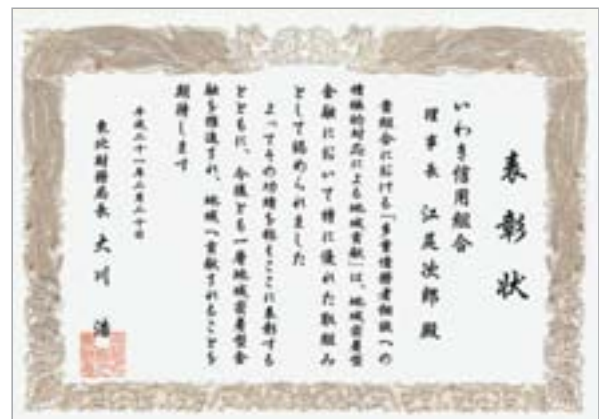 表彰状
いわき信用組合
理事長 江尻次郎 殿
貴組合における「多重債務者相談への
積極的対応による地域貢献」は、地域密着型
金融において特に優れた取組み
として認められました
よってその功績を称えここに表彰する
とともに、今後とも一層地域密着型金
融を推進され、地域へ貢献されることを
期待します
平成二十一年二月二十日
東北財務局長 大川 浩